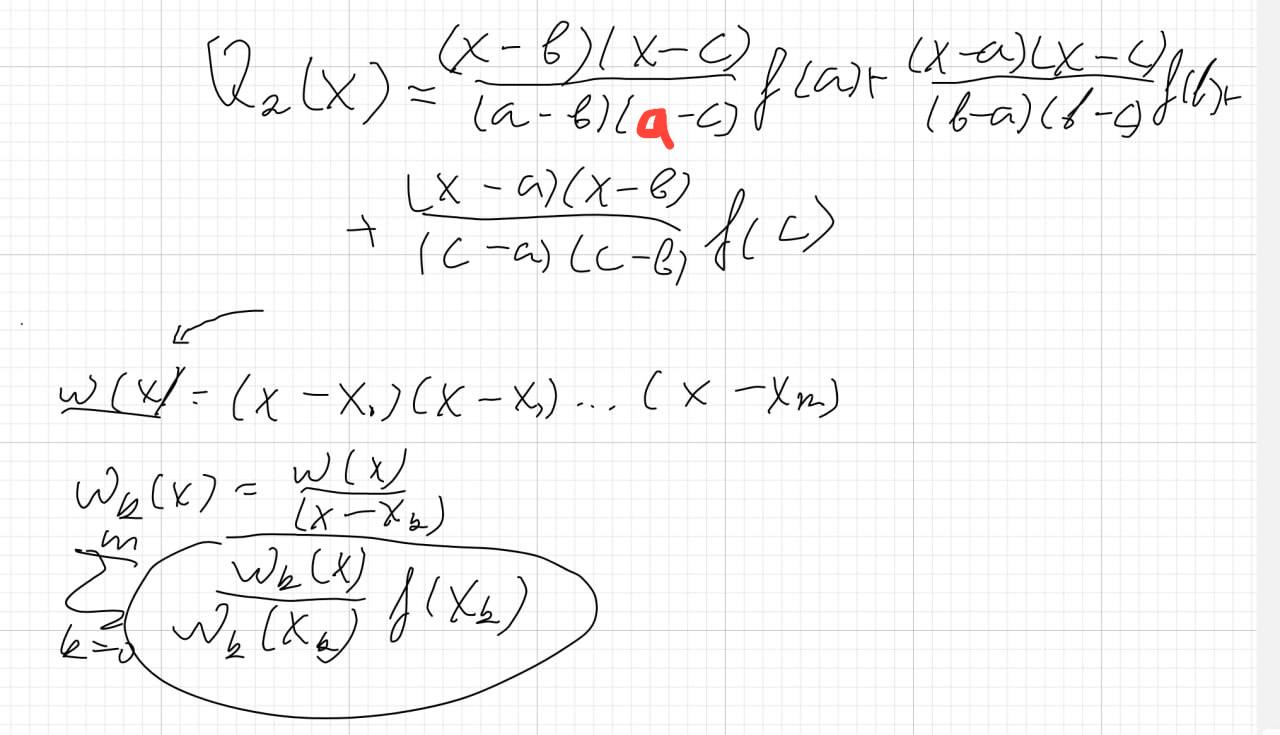 Q₂(x) = (x-b)(x-c)/(a-b)(a-c) f(a)+ (x-a)(x-c)/(b-a)(b-c) f(b)+
+ (x-a)(x-b)/(c-a)(c-b) f(c)
w(x) = (x-x₀)(x-x₁)...(x-xₘ)
wₖ(x) = w(x)/(x-xₖ)
∑ₖ₌₀ᵐ wₖ(x)/wₖ(xₖ) f(xₖ)